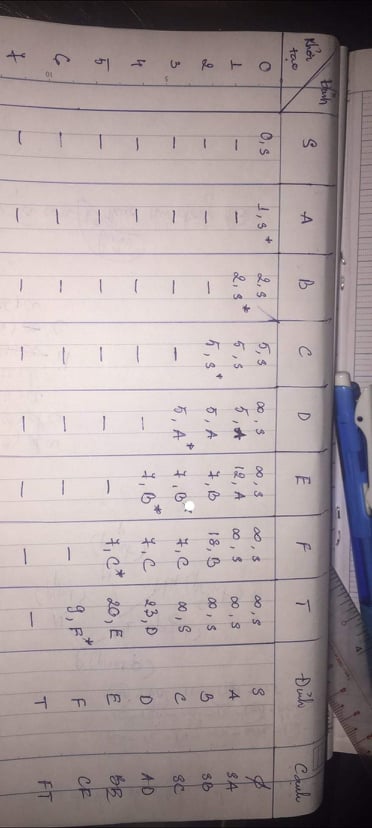 Đỉnh
Khởi tạo S A B C D E F T Đỉnh Cạnh
0 0,S 1,S* 2,S 5,S ∞,S ∞,S ∞,S ∞,S S ∅
1 — — 2,S* 5,S 5,A 12,A ∞,S ∞,S A SA
2 — — — 5,S* 5,A 7,B 18,B ∞,S B SB
3 — — — — 5,A* 7,B 7,C ∞,S C SC
4 — — — — — 7,B* 7,C 23,D D AD
5 — — — — — — 7,C* 20,E E BE
6 — — — — — — — 9,F* F CF
7 — — — — — — — — T FT